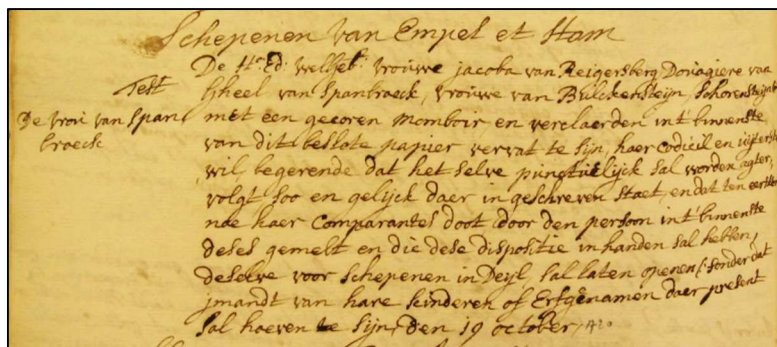 Schepenen van Empel et Ham
De H: Ed: welhe: vrouwe jacoba van Reigersberg Douagiere van
Test
Gheel van Spanbraeck, vrouwe van Bulckensteijn, Schorensteijn
De vrou van Span
met een gecoren momboir, en verclaerden int binnenste
braeck
van dit beslote papier vervat te sijn, haer Codicil en uijterste
wil, begerende dat het selve punctuelijck sal worden agter,
volgt soo en gelijck daer in geschreven staet en dat ten eersten
nae haer Comparantes doot door den persoon int binnenste
deses gemelt en die dese dispositie in handen sal hebben,
deselve voor schepenen in Deijl sal laten openen /: sonder dat
jmandt van hare kinderen of Erfgenamen daer present
sal hoeven te sijn, den 19 october,